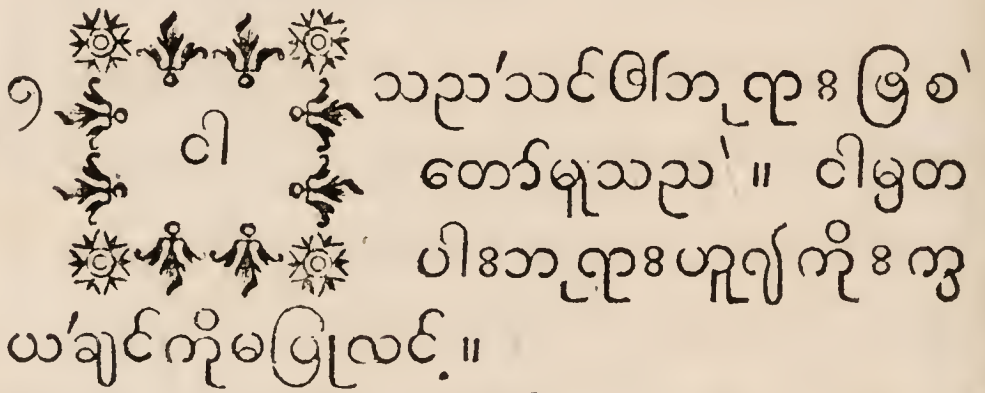 ၁ ငါ သည်သင်၏ဘုရားဖြစ်
တော်မူသည်။ ငါမှတ
ပါးဘုရားဟူ၍ကိုးကွ
ယ်ချင်ကိုမပြုလင့်။